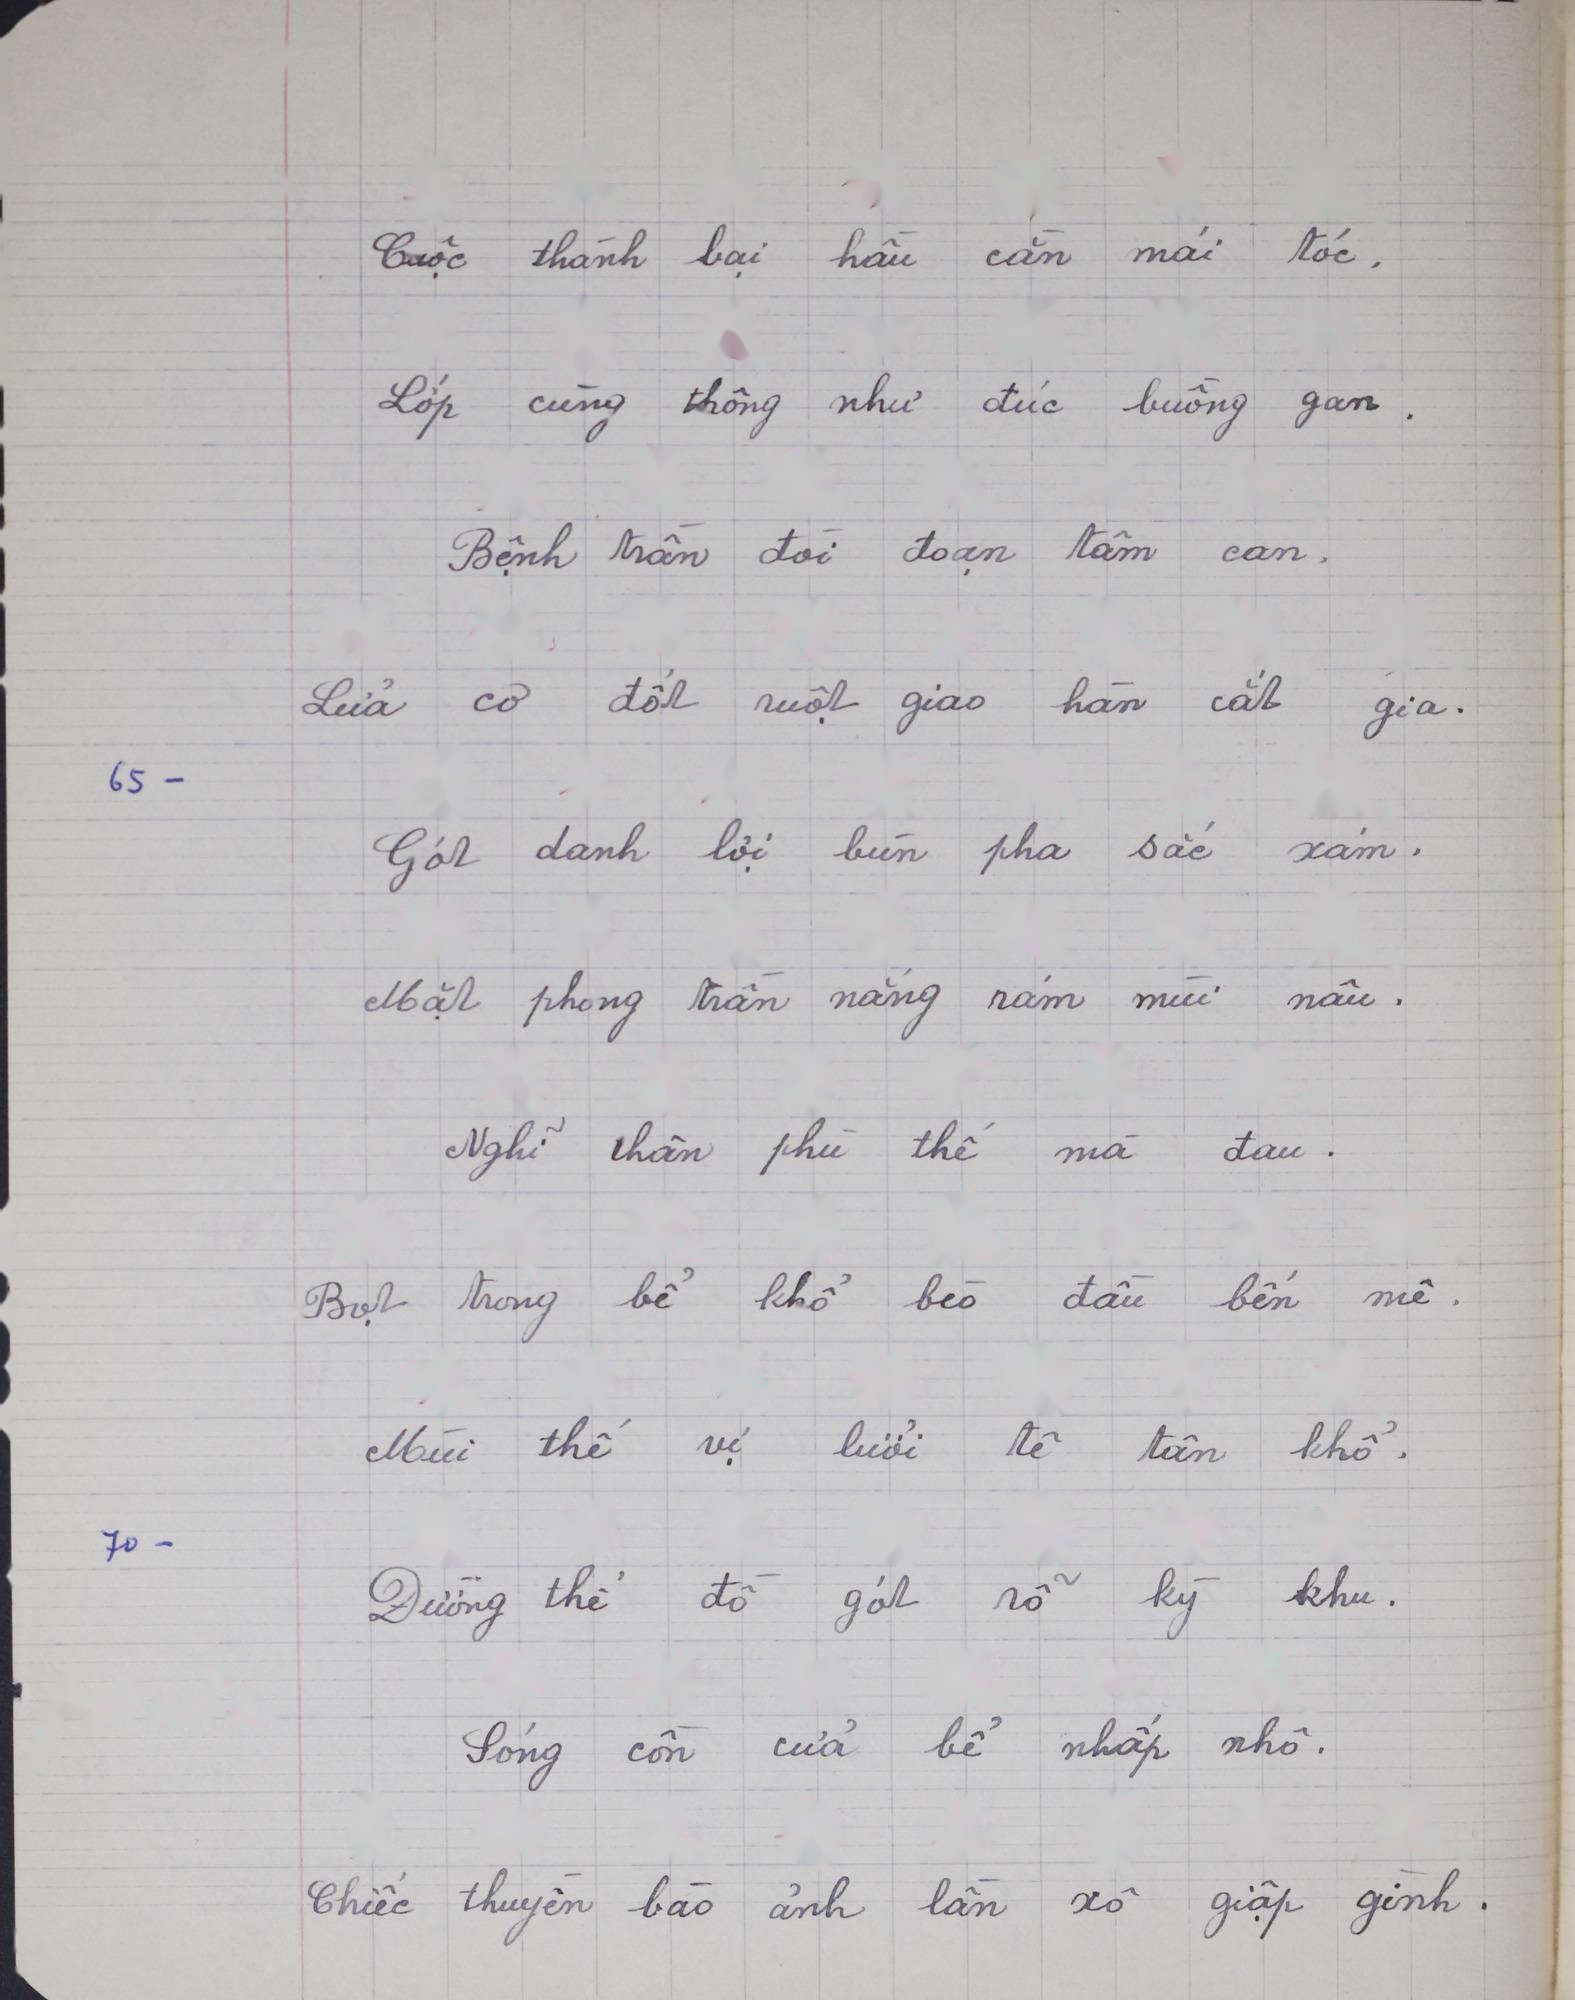 Cuộc thành bại hầu cằn mái tóc.
Lớp cùng thông như đúc buồng gan.
Bệnh trần đòi đoạn tâm can.
Lửa cơ đốt ruột giao hàn cắt gia.
65 -
Gót danh lợi bùn pha sắc xám.
Mặt phong trần nắng rám mùi nâu.
Nghĩ thân phù thế mà đau.
Bọt trong bể khổ bèo đầu bến mê.
Mùi thế vị lưỡi tê tân khổ.
70 -
Đường thế đồ gót rỗ kỳ khu.
Sóng cồn cửa bể nhấp nhô.
Chiếc thuyền bào ảnh lần xô giập gình.